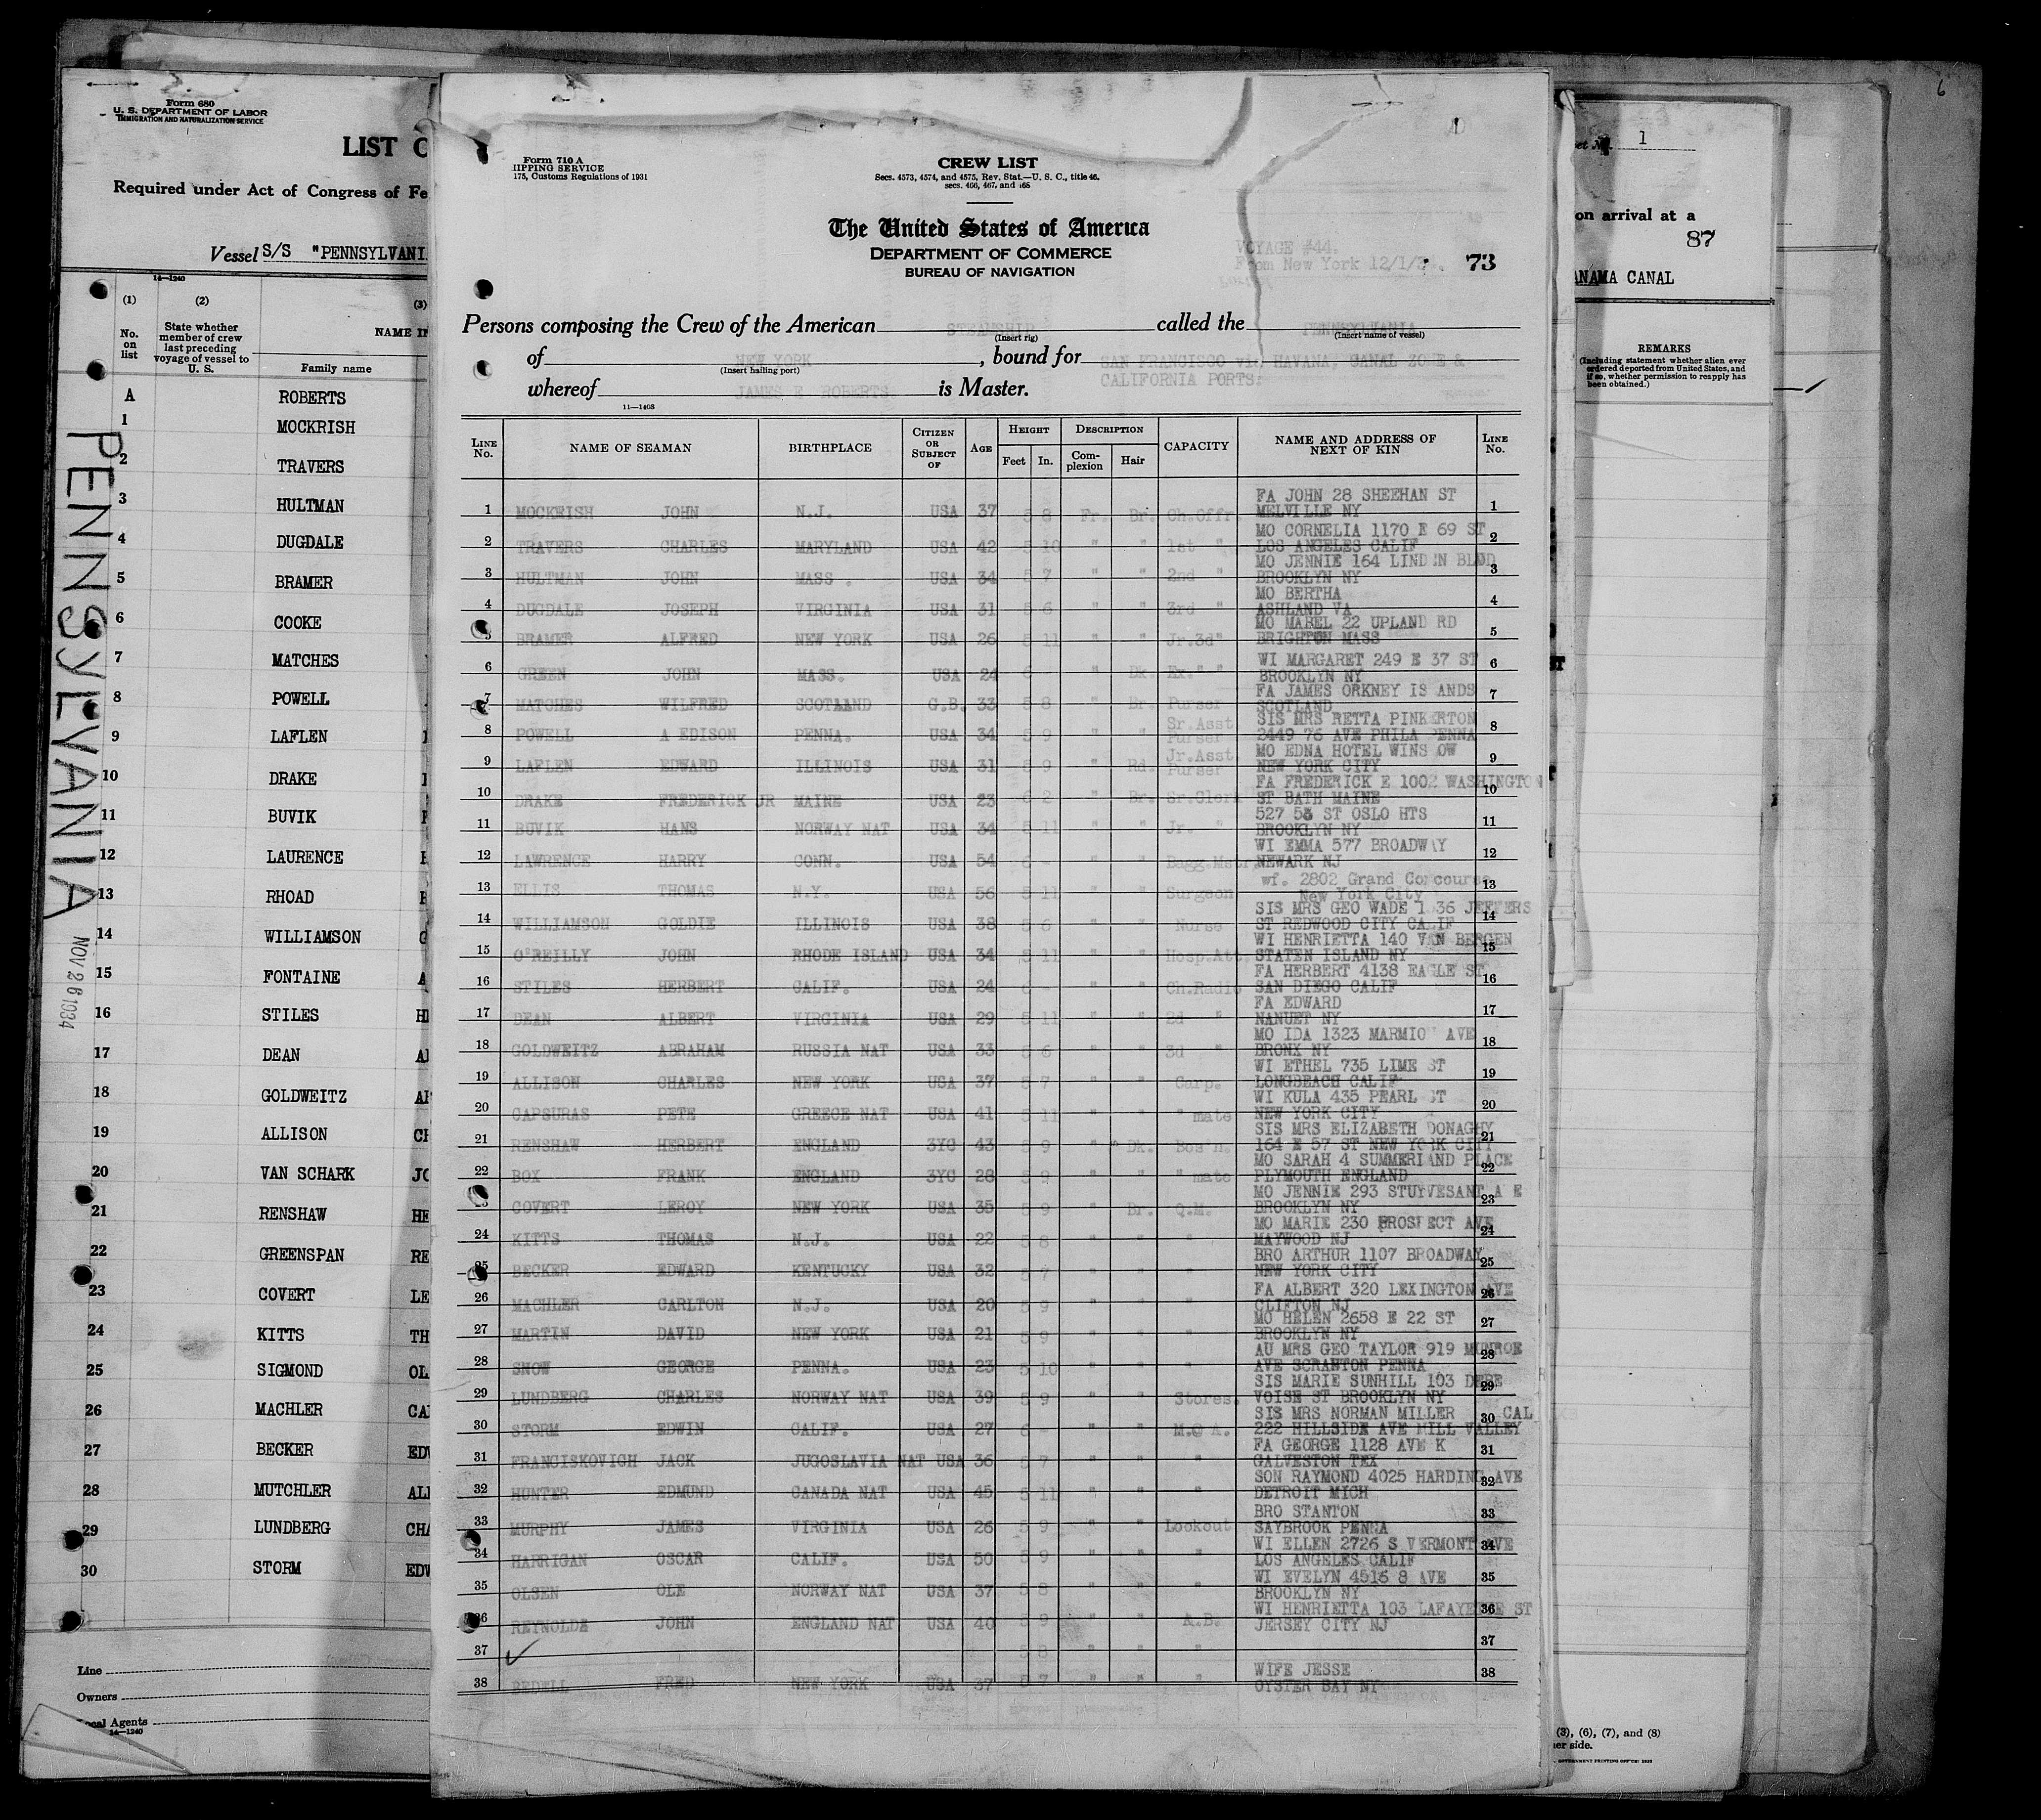 Form 680
U. S. DEPARTMENT OF LABOR
IMMIGRATION AND NATURALIZATION SERVICE
LIST
Required under Act of Congress of Fe
Vessel S/S "PENNSYLVANI
14—1240
(1) (2) (3)
No. on list
State whether member of crew last preceding voyage of vessel to U. S.
NAME IN
Family name
A ROBERTS
1 MOCKRISH
2 TRAVERS
3 HULTMAN
4 DUGDALE
5 BRAMER
6 COOKE
7 MATCHES
8 POWELL
9 LAFLEN
10 DRAKE
11 BUVIK
12 LAURENCE
13 RHOAD
14 WILLIAMSON
15 FONTAINE
16 STILES
17 DEAN
18 GOLDWEITZ
19 ALLISON
20 VAN SCHARK JO
21 RENSHAW HE
22 GREENSPAN RE
23 COVERT LE
24 KITTS TH
25 SIGMOND OL
26 MACHLER CA
27 BECKER EDW
28 MUTCHLER AL
29 LUNDBERG CHA
30 STORM EDW
PENNSYLVANIA
NOV 26 1934
Line
Owners
Local Agents
14—1240
Form 710 A
IIPPING SERVICE
175, Customs Regulations of 1931
CREW LIST
Secs. 4573, 4574, and 4575, Rev. Stat.—U. S. C., title 46,
secs. 466, 467, and 468
The United States of America
DEPARTMENT OF COMMERCE
BUREAU OF NAVIGATION
VOYAGE #44.
From New York 12/1/34.
73
Persons composing the Crew of the American STEAMSHIP called the PENNSYLVANIA
(Insert rig) (Insert name of vessel)
of NEW YORK, bound for SAN FRANCISCO via HAVANA, CANAL ZONE &
(Insert hailing port)
CALIFORNIA PORTS.
whereof JAMES E ROBERTS is Master.
11—1408
LINE No. NAME OF SEAMAN BIRTHPLACE CITIZEN OR SUBJECT OF AGE HEIGHT Feet In. DESCRIPTION Complexion Hair CAPACITY NAME AND ADDRESS OF NEXT OF KIN LINE No.
1 MOCKRISH JOHN N.J. USA 37 5 8 Fr. Br. Ch.Offr. FA JOHN 28 SHEEHAN ST MELVILLE NY 1
2 TRAVERS CHARLES MARYLAND USA 42 5 10 " " 1st " MO CORNELIA 1170 E 69 ST LOS ANGELES CALIF 2
3 HULTMAN JOHN MASS. USA 34 5 7 " " 2nd " MO JENNIE 164 LINDEN BLVD BROOKLYN NY 3
4 DUGDALE JOSEPH VIRGINIA USA 31 5 6 " " 3rd " MO BERTHA ASHLAND VA 4
5 BRAMER ALFRED NEW YORK USA 26 5 11 " " Jr.3d" MO MABEL 22 UPLAND RD BRIGHTON MASS 5
6 GREEN JOHN MASS. USA 24 6 - " Dk. Ex. " " WI MARGARET 249 E 37 ST BROOKLYN NY 6
7 MATCHES WILFRED SCOTLAND G.B. 33 5 8 " Br. Purser FA JAMES ORKNEY IS ANDS SCOTLAND 7
8 POWELL A EDISON PENNA. USA 34 5 9 " " Sr.Asst Purser SIS MRS RETTA PINKERTON 2449 76 AVE PHILA PENNA 8
9 LAFLEN EDWARD ILLINOIS USA 31 5 9 " Rd. Jr.Asst Purser MO EDNA HOTEL WINS OW NEW YORK CITY 9
10 DRAKE FREDERICK JR MAINE USA 23 6 2 " Br. Sr.Clerk FA FREDERICK E 1002 WASHINGTON ST BATH MAINE 10
11 BUVIK HANS NORWAY NAT USA 34 5 11 " " Jr. " 527 53 ST OSLO HTS BROOKLYN NY 11
12 LAWRENCE HARRY CONN. USA 54 6 - " " Bagg.Mstr. WI EMMA 577 BROADWAY NEWARK NJ 12
13 ELLIS THOMAS N.Y. USA 56 5 11 " " Surgeon wf. 2802 Grand Concourse New York City 13
14 WILLIAMSON GOLDIE ILLINOIS USA 38 5 6 " " Nurse SIS MRS GEO WADE 1 36 JEFFERS ST REDWOOD CITY CALIF 14
15 O'REILLY JOHN RHODE ISLAND USA 34 5 11 " " Hosp.Att. WI HENRIETTA 140 VAN BERGEN STATEN ISLAND NY 15
16 STILES HERBERT CALIF. USA 24 6 - " " Ch.Radio FA HERBERT 4138 EAGLE ST SAN DIEGO CALIF 16
17 DEAN ALBERT VIRGINIA USA 29 5 11 " " 2d " FA EDWARD NANUET NY 17
18 GOLDWEITZ ABRAHAM RUSSIA NAT USA 33 5 6 " " 3d " MO IDA 1323 MARMION AVE BRONX NY 18
19 ALLISON CHARLES NEW YORK USA 37 5 7 " " Carp. WI ETHEL 735 LIME ST LONGBEACH CALIF 19
20 CAPSURAS PETE GREECE NAT USA 41 5 11 " " " mate WI KULA 435 PEARL ST NEW YORK CITY 20
21 RENSHAW HERBERT ENGLAND 3YC 43 5 9 " " Dk. Bos'n. SIS MRS ELIZABETH DONAGHY 164 E 57 ST NEW YORK CITY 21
22 BOX FRANK ENGLAND 3YC 28 5 9 " " " mate MO SARAH 4 SUMMERLAND PLACE PLYMOUTH ENGLAND 22
23 COVERT LEROY NEW YORK USA 35 5 9 " Br. Q.M. MO JENNIE 293 STUYVESANT A E BROOKLYN NY 23
24 KITTS THOMAS N.J. USA 22 5 8 " " " MO MARIE 230 PROSPECT AVE MAYWOOD NJ 24
25 BECKER EDWARD KENTUCKY USA 32 5 7 " " " BRO ARTHUR 1107 BROADWAY NEW YORK CITY 25
26 MACHLER CARLTON N.J. USA 20 5 9 " " " FA ALBERT 320 LEXINGTON AVE CLIFTON NJ 26
27 MARTIN DAVID NEW YORK USA 21 5 9 " " " MO HELEN 2658 E 22 ST BROOKLYN NY 27
28 SNOW GEORGE PENNA. USA 23 5 10 " " " AU MRS GEO TAYLOR 919 MONROE AVE SCRANTON PENNA 28
29 LUNDBERG CHARLES NORWAY NAT USA 39 5 9 " " Stores. SIS MARIE SUNHILL 103 DEBE VOISE ST BROOKLYN NY 29
30 STORM EDWIN CALIF. USA 27 6 - " " M.@ A. SIS MRS NORMAN MILLER CAL 222 HILLSIDE AVE MILL VALLEY 30
31 FRANCISKOVICH JACK JUGOSLAVIA NAT USA 36 5 7 " " " FA GEORGE 1128 AVE K GALVESTON TEX 31
32 HUNTER EDMUND CANADA NAT USA 45 5 11 " " " SON RAYMOND 4025 HARDING AVE DETROIT MICH 32
33 MURPHY JAMES VIRGINIA USA 26 5 9 " " Lookout BRO STANTON SAYBROOK PENNA 33
34 HARRIGAN OSCAR CALIF. USA 50 5 9 " " " WI ELLEN 2726 S VERMONT AVE LOS ANGELES CALIF 34
35 OLSEN OLE NORWAY NAT USA 37 5 8 " " " WI EVELYN 4516 8 AVE BROOKLYN NY 35
36 REYNOLDS JOHN ENGLAND NAT USA 40 5 9 " " A.B. WI HENRIETTA 103 LAFAYETTE ST JERSEY CITY NJ 36
37 ✓ 5 8 " " " 37
38 BEDELL FRED NEW YORK USA 37 5 7 " " " WIFE JESSE OYSTER BAY NY 38
1
on arrival at a
87
ANAMA CANAL
REMARKS
(Including statement whether alien ever
ordered deported from United States, and
if so, whether permission to reapply has
been obtained.)
(3), (6), (7), and (8)
er side.
6